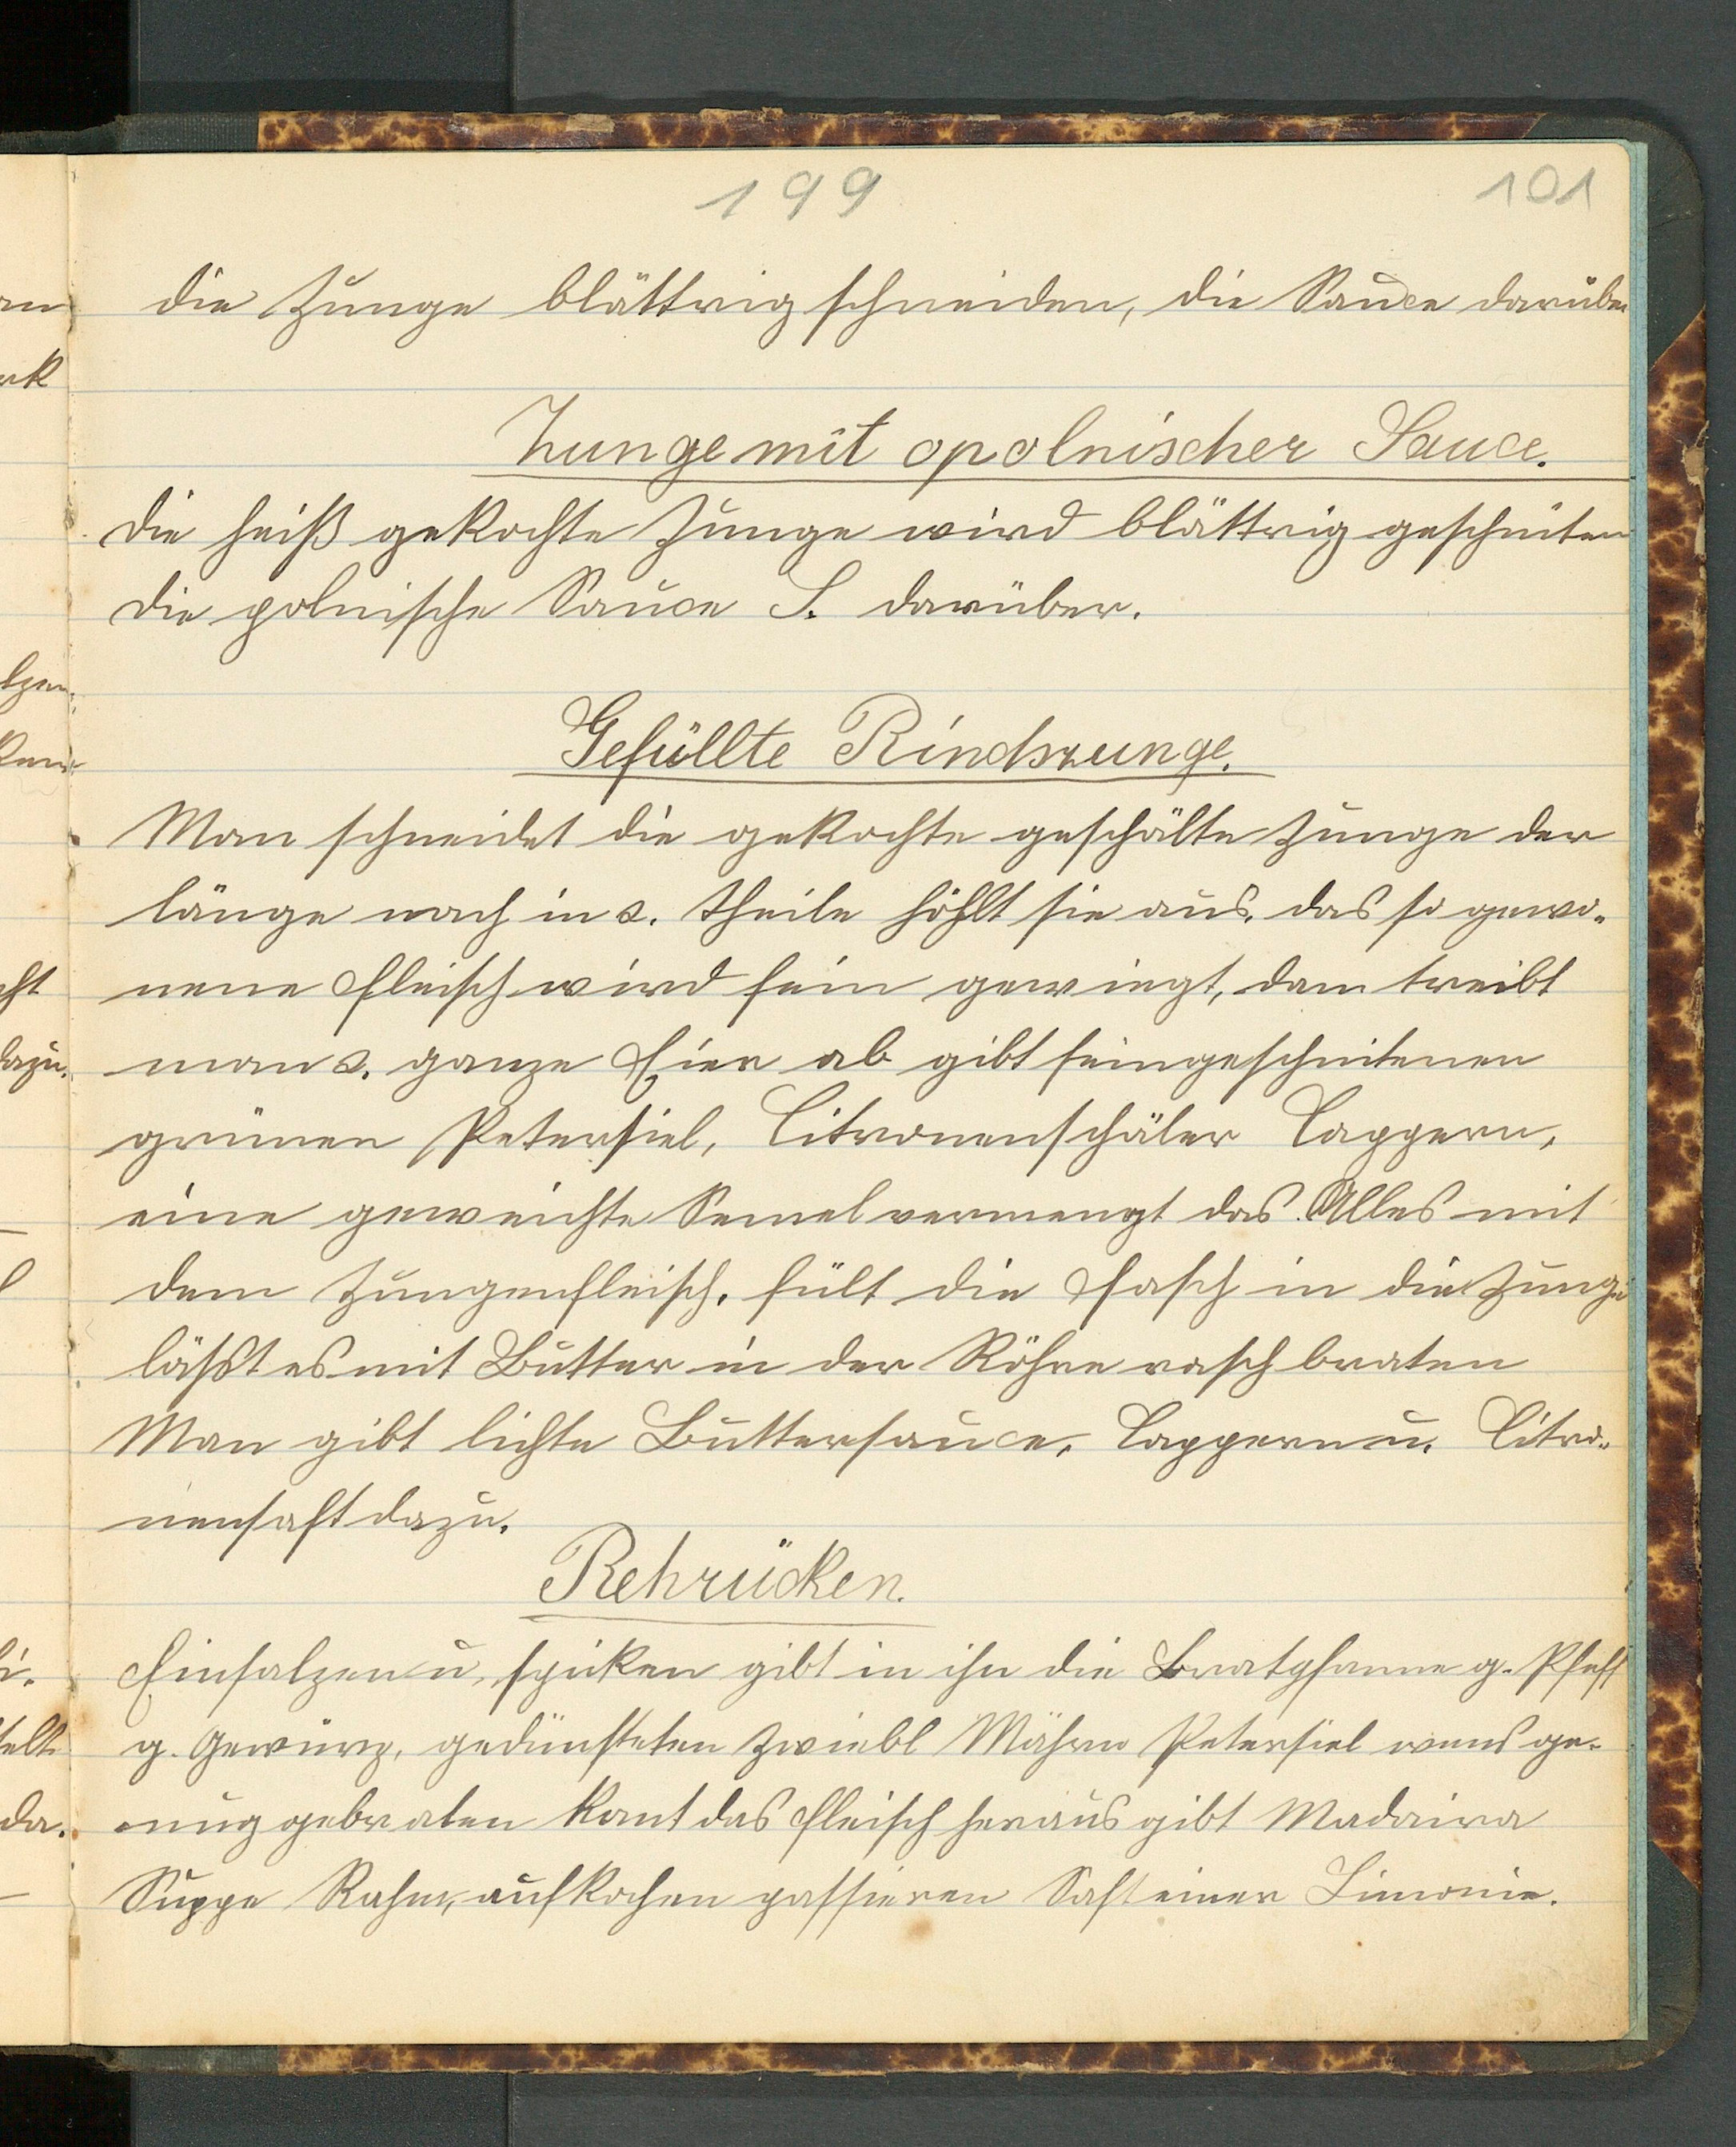 199
101
die Zunge blättrig schneiden, die Sauce darüber
Zunge mit opolnischer Sauce.
Die heiß gekochte Zunge wird blättrig geschniten
die polnische Sauce S. darüber.
Gefüllte Rindszunge.
Man schneidet die gekochte geschälte Zunge der
länge nach in 2. theile höhlt sie aus, das so gewo-
nene Fleisch wird fein gewiegt, dann treibt
man 2. ganze Eier ab gibt feingeschnitenen
grünen Petersiel, Citronenschäler Cappern,
eine geweichte Semel vermengt das Alles mit
dem Zungenfleisch, fült die Fasch in die Zunge
läßt es mit Butter in der Röhre rasch braten
Man gibt lichte Buttersauce, Cappern u. Citro-
nensaft dazu.
Rehrücken.
Einsalzen u. spicken gibt in ihn die Bratpfanne g. Pfeff
g. Gewürz, gedünsteten Zwiebl Möhrn Petersiel wens ge-
nug gebraten kont das Fleisch heraus gibt Madaira
Suppe Rahm, aufkochen passieren Saft einer Limonie.